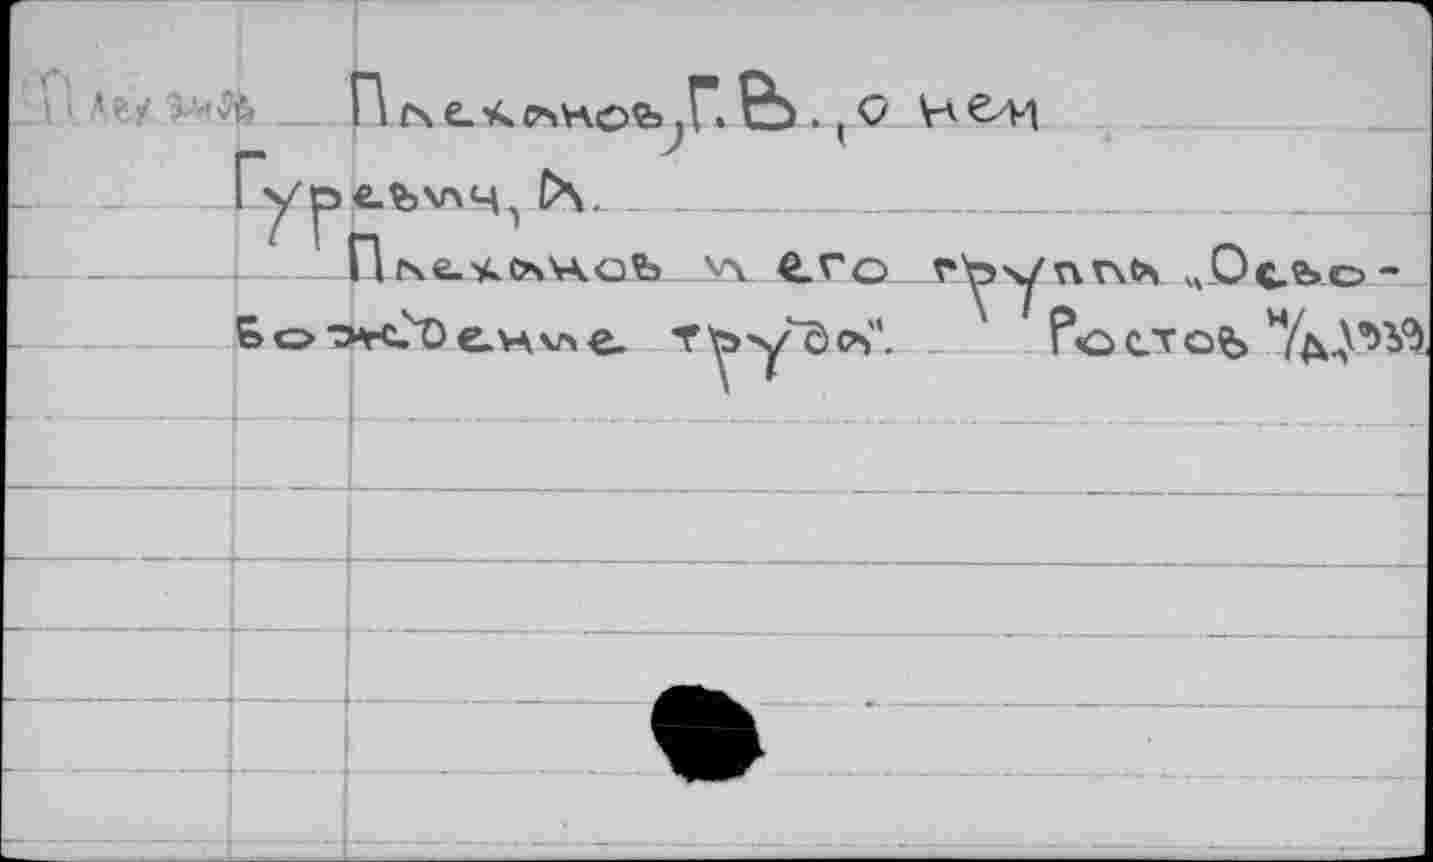 Плеханов, Г.В., о нем
Гуревич,
Плеханов и его группа „Осво-
бождение труда". Ростов н/Д,